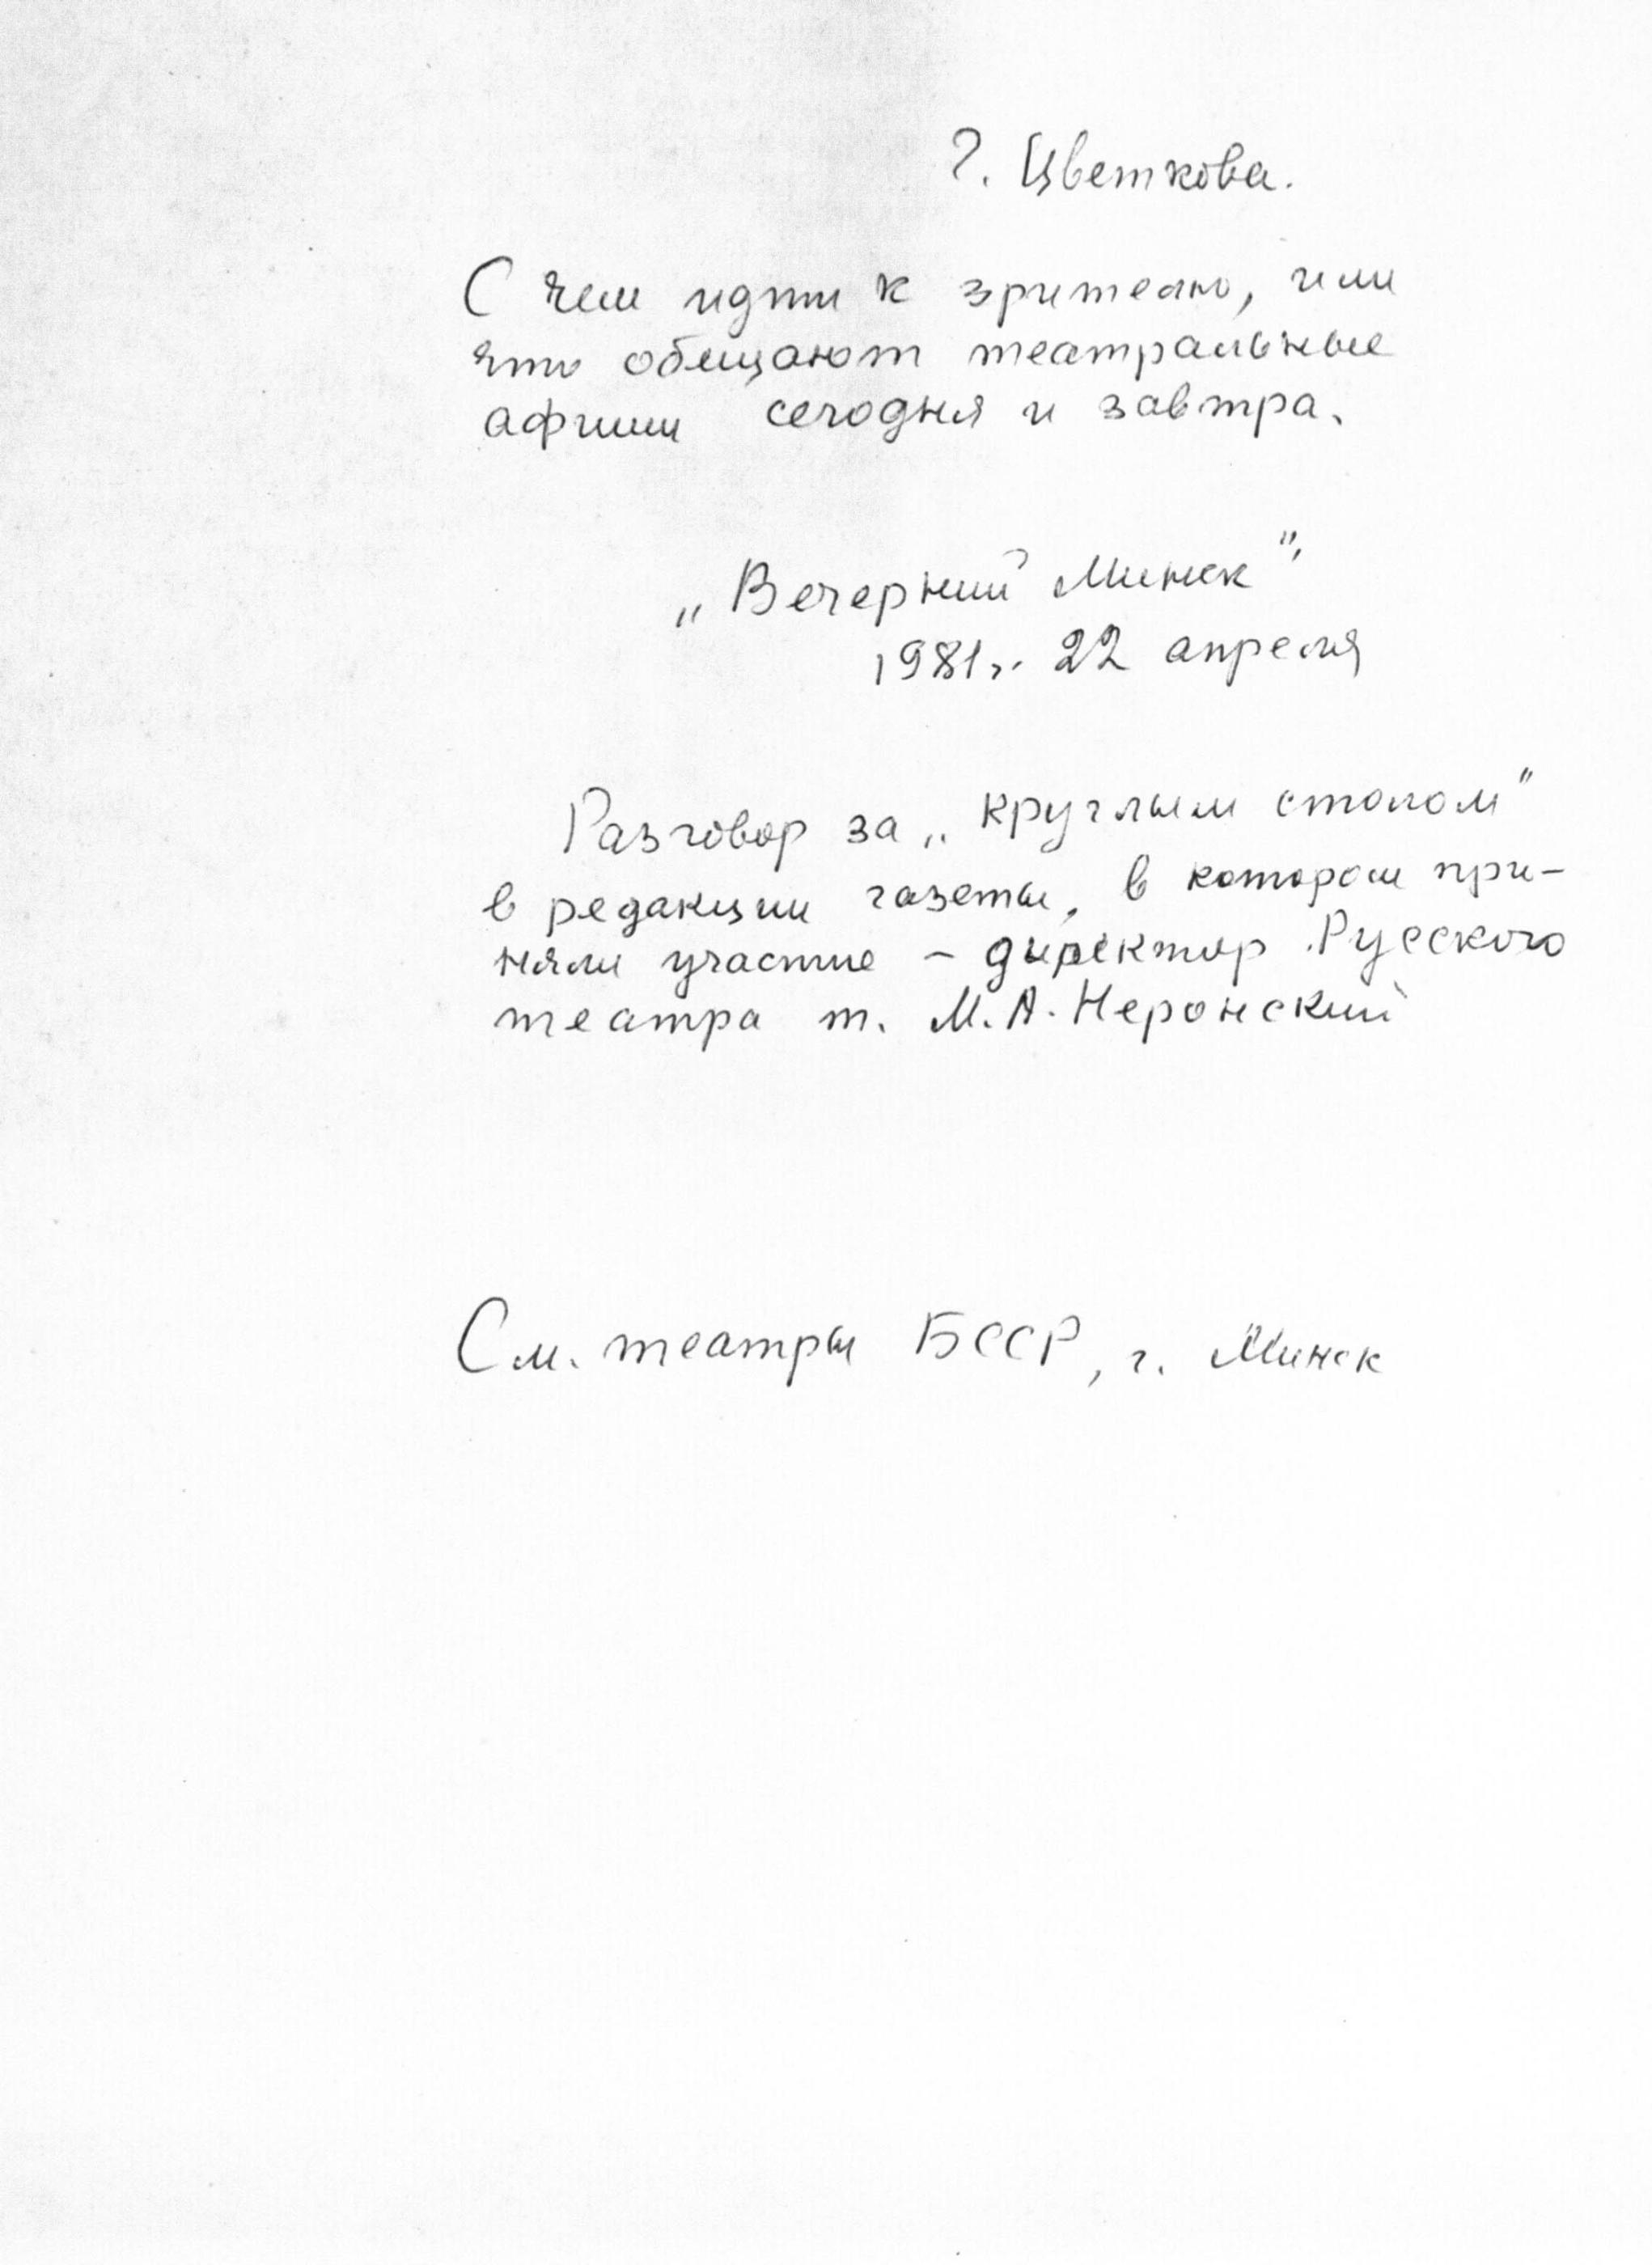 Г. Цветкова.
С чем идти к зрителю, или
что обещают театральные
афиши сегодня и завтра.
„Вечерний Минск",
1981г. 22 апреля
Разговор за „круглым столом"
в редакции газеты, в котором при-
няли участие – директор Русского
театра т. М.А. Неронский
См. театры БССР, г. Минск